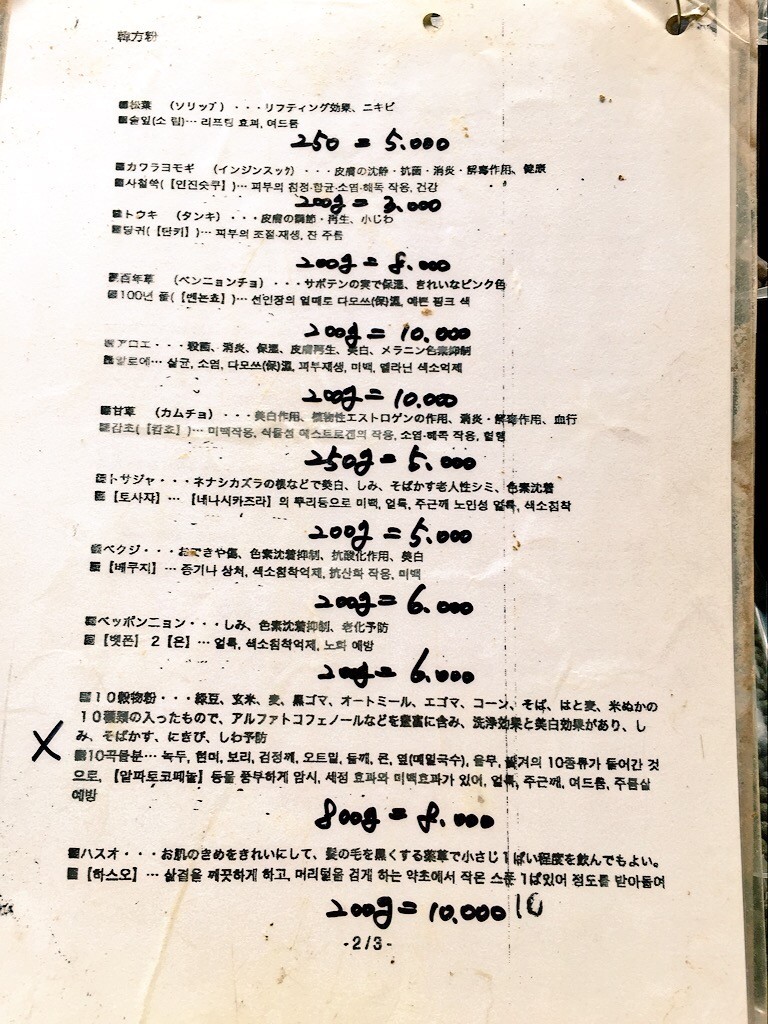 韓方粉
■松葉 (ソリップ)・・・リフティング効果、ニキビ
■솔잎(소 립)… 리프팅 효과, 여드름
250 = 5.000
■カワラヨモギ (インジンスック)・・・皮膚の沈静・抗菌・消炎・解毒作用、健康
■사철쑥(【인진숫쿠】)… 피부의 침정·항균·소염·해독 작용, 건강
200g = 3.000
■トウキ (タンキ)・・・皮膚の調節・再生、小じわ
■당귀(【탄키】)… 피부의 조절·재생, 잔 주름
200g = 8.000
■百年草 (ペンニョンチョ)・・・サボテンの実で保湿、きれいなピンク色
■100년 풀(【벤뇬쵸】)… 선인장의 열매로 다모쓰(保)濕, 예쁜 핑크 색
200g = 10.000
■アロエ・・・殺菌、消炎、保湿、皮膚再生、美白、メラニン色素抑制
■알로에… 살균, 소염, 다모쓰(保)濕, 피부재생, 미백, 멜라닌 색소억제
200g = 10.000
■甘草 (カムチョ)・・・美白作用、植物性エストロゲンの作用、消炎・解毒作用、血行
■감초(【캄쵸】)… 미백작용, 식물성 에스트로겐의 작용, 소염·해독 작용, 혈행
250g = 5.000
■トサジャ・・・ネナシカズラの種などで美白、しみ、そばかす老人性シミ、色素沈着
■【토사쟈】… 【네나시카즈라】의 뿌리등으로 미백, 얼룩, 주근깨 노인성 얼룩, 색소침착
200g = 5.000
■ペクジ・・・おできや傷、色素沈着抑制、抗酸化作用、美白
■【베쿠지】… 종기나 상처, 색소침착억제, 抗산화 작용, 미백
200g = 6.000
■ペッポンニョン・・・しみ、色素沈着抑制、老化予防
■【벳폰】2【욘】… 얼룩, 색소침착억제, 노화 예방
200g = 6.000
■10穀物粉・・・緑豆、玄米、麦、黒ゴマ、オートミール、エゴマ、コーン、そば、はと麦、米ぬかの
10種類の入ったもので、アルファトコフェノールなどを豊富に含み、洗浄効果と美白効果があり、し
み、そばかす、にきび、しわ予防
X
■10곡물분… 녹두, 현미, 보리, 검정깨, 오트밀, 들깨, 콘, 옆(메밀국수), 율무, 쌀겨의 10종류가 들어간 것
으로, 【알파토코페놀】등을 풍부하게 암시, 세정 효과와 미백효과가 있어, 얼룩, 주근깨, 여드름, 주름살
예방
800g = 8.000
■ハスオ・・・お肌のきめをきれいにして、髪の毛を黒くする薬草で小さじ1ぱい程度を飲んでもよい。
■【하스오】… 살결을 깨끗하게 하고, 머리털을 검게 하는 약초에서 작은 스푼 1ぱ있어 정도를 받아둠여
200g = 10.000 10
-2/3-